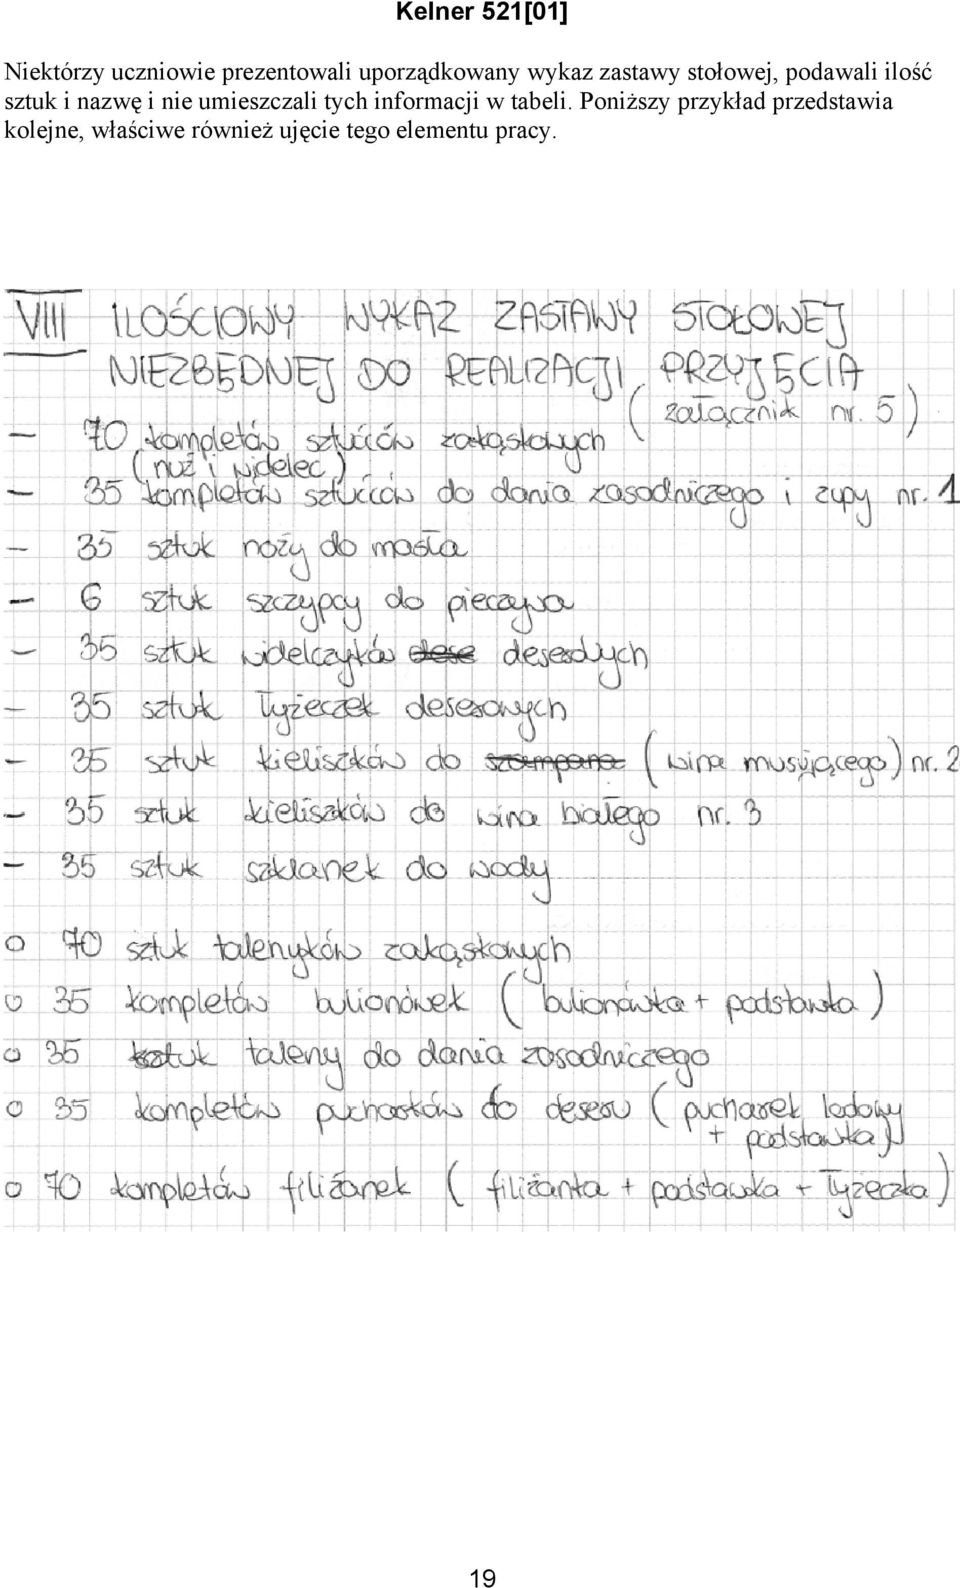 Kelner 521[01]
Niektórzy uczniowie prezentowali uporządkowany wykaz zastawy stołowej, podawali ilość
sztuk i nazwę i nie umieszczali tych informacji w tabeli. Poniższy przykład przedstawia
kolejne, właściwe również ujęcie tego elementu pracy.
VIII ILOŚCIOWY WYKAZ ZASTAWY STOŁOWEJ
NIEZBĘDNEJ DO REALIZACJI PRZYJĘCIA
(załącznik nr. 5)
- 70 kompletów sztućców zakąskowych
(nuż i widelec)
- 35 kompletów sztućców do dania zasadniczego i zupy nr. 1
- 35 sztuk noży do masła
- 6 sztuk szczypcy do pieczywa
- 35 sztuk widelczyków dese deserdych
- 35 sztuk łyżeczek deserowych
- 35 sztuk kieliszków do szampana (wina musującego) nr. 2
- 35 sztuk kieliszków do wina białego nr. 3
- 35 sztuk szklanek do wody
o 70 sztuk talerzyków zakąskowych
o 35 kompletów bulionówek (bulionówka + podstawka)
o 35 sztuk talerzy do dania zasadniczego
o 35 kompletów pucharków do deseru (pucharek lodowy
+ podstawka)
o 70 kompletów filiżanek (filiżanka + podstawka + łyżeczka)
19